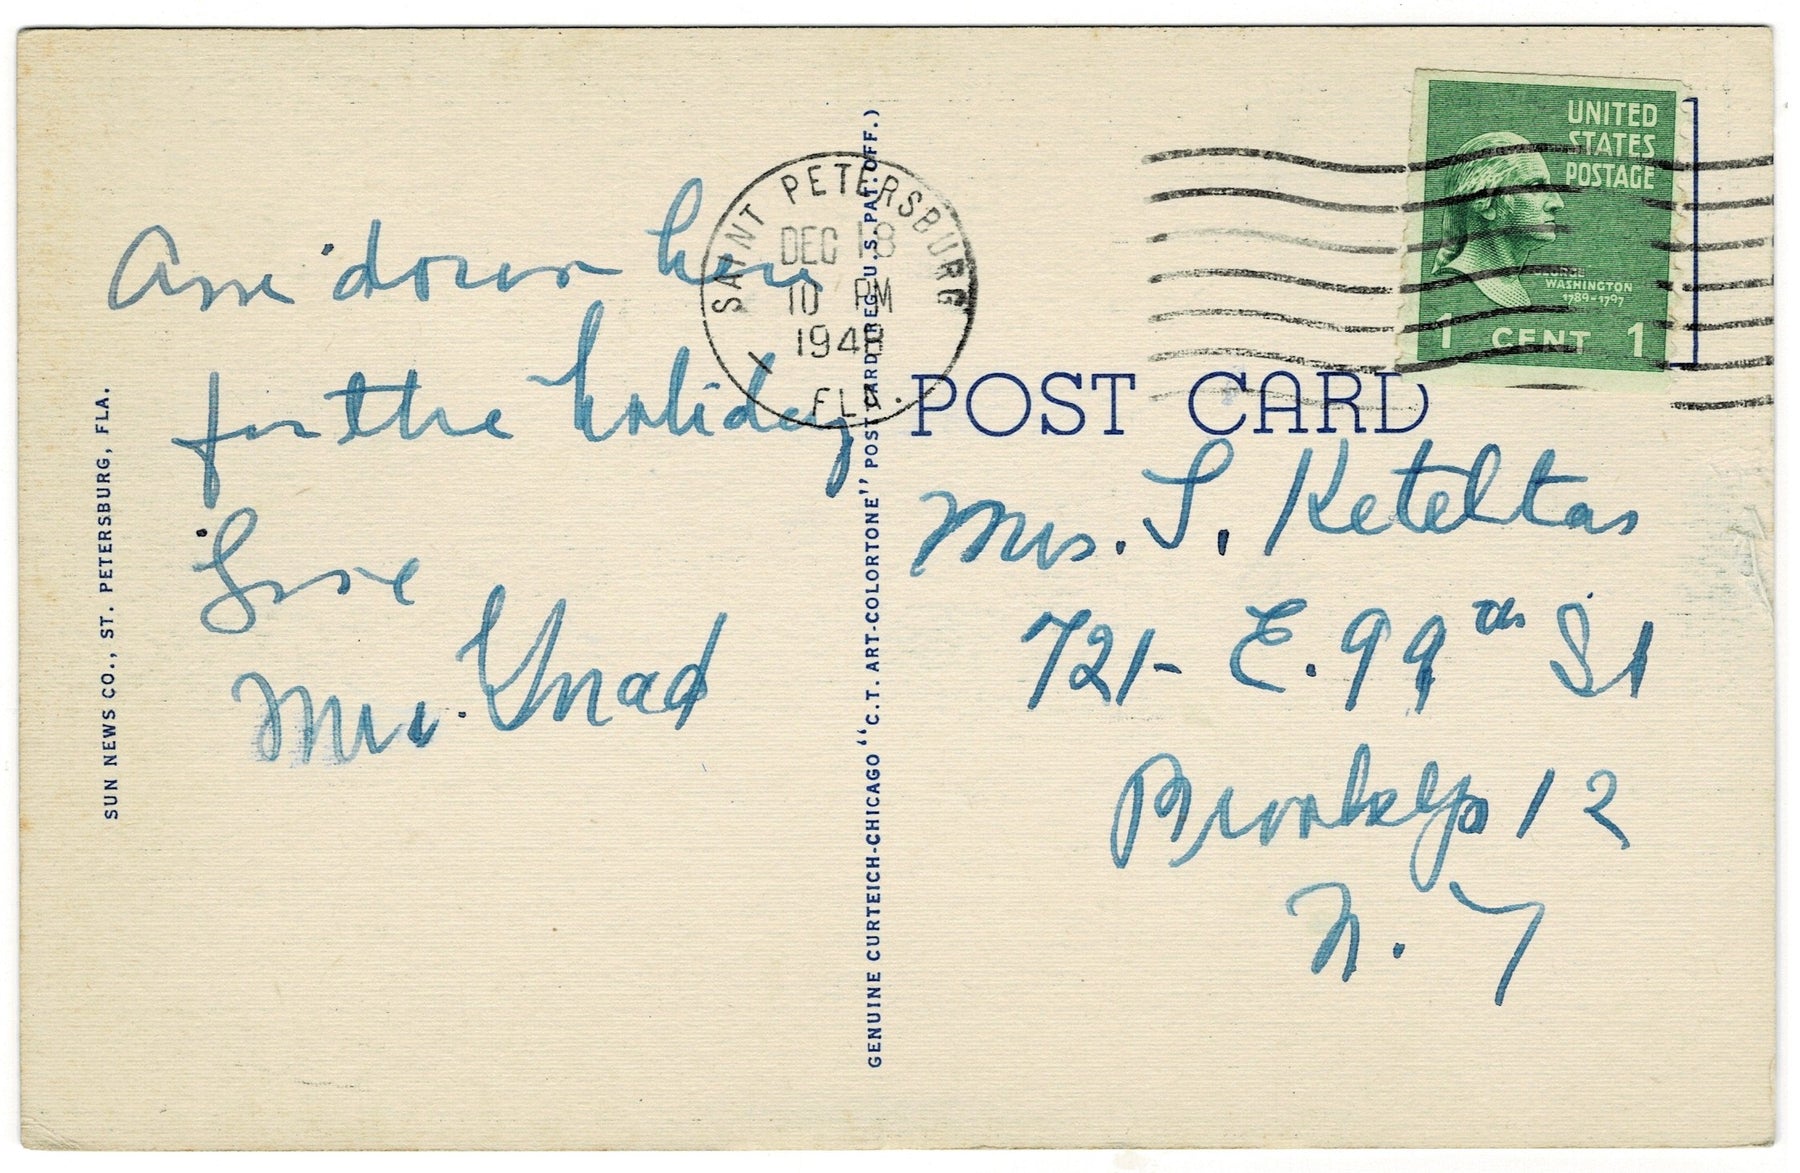 Am down here
for the holiday
Love
Mrs.
SUN NEWS CO., ST. PETERSBURG, FLA.
GENUINE CURTEICH-CHICAGO "C.T. ART-COLORTONE" POST CARD (REG. U.S. PAT. OFF.)
SAINT PETERSBURG
DEC 18
10 PM
1948
FLA.
UNITED
STATES
POSTAGE
GEORGE
WASHINGTON
1789-1797
1 CENT 1
POST CARD
Mrs. S. Keteltas
721- E. 99th St
Brooklyn 12
N. Y